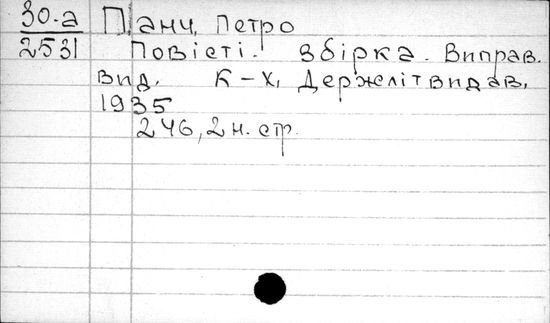 30-а
2531
Панч, Петро
Повісті. Збірка. Виправ.
вид. К-Х, Держлітвидав,
1935
246, 2 н. стр.